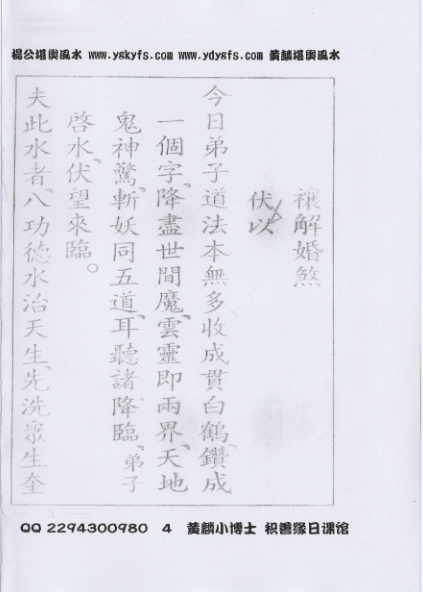 楊公堪輿風水 www.ygkyfs.com www.ydygfs.com 黄麟堪輿風水
禳解婚煞
伏以
今日弟子道法本無多收成貫白鶴鑽成
一個字、降盡世間魔、雲靈即兩界、天地
鬼神驚、斬妖同五道、耳聽諸降臨、弟子
啓水、伏望來臨。
夫此水者、八功德水治天生、先洗衆生奎
QQ 2294300980 4 黄麟小博士 积善缘日课馆